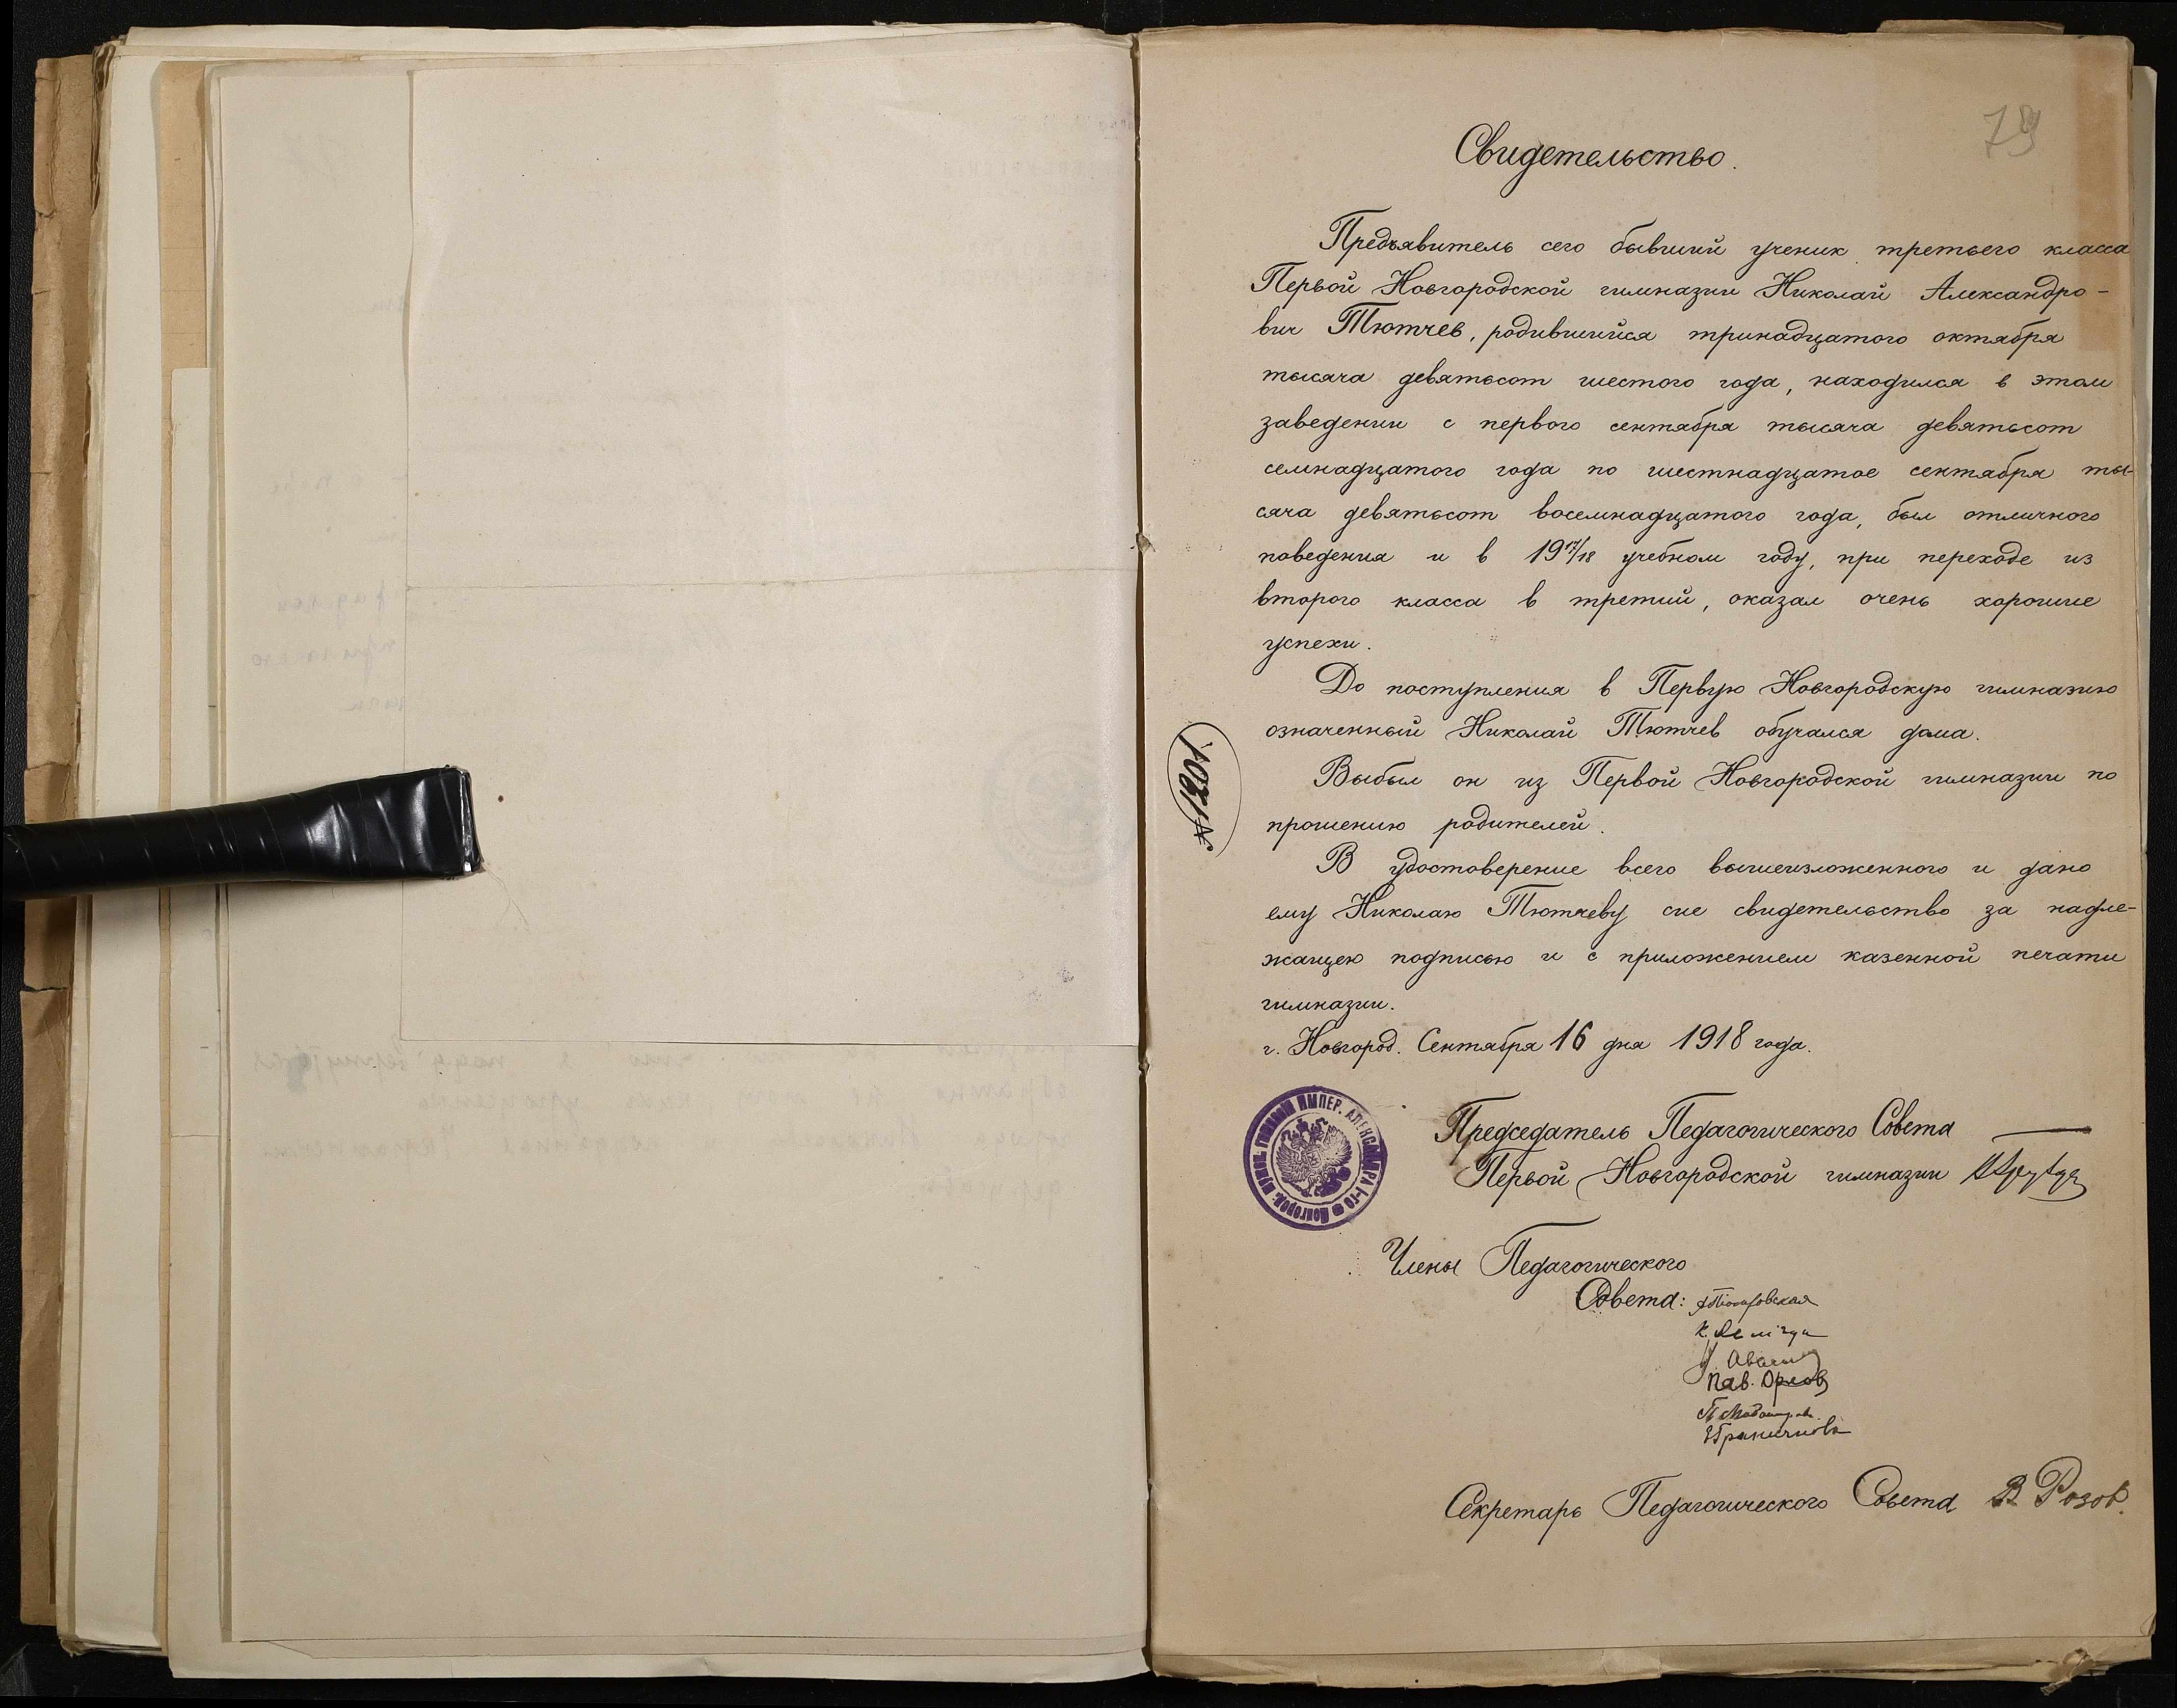 79
Свидетельство.
Предъявитель сего бывший ученик третьего класса
Первой Новгородской гимназии Николай Александро-
вич Тютчев, родившийся тринадцатого октября
тысяча девятьсот шестого года, находился в этом
заведении с первого сентября тысяча девятьсот
семнадцатого года по шестнадцатое сентября ты-
сяча девятьсот восемнадцатого года, был отличного
поведения и в 1917/18 учебном году, при переходе из
второго класса в третий, оказал очень хорошие
успехи.
До поступления в Первую Новгородскую гимназию
означенный Николай Тютчев обучался дома.
Выбыл он из Первой Новгородской гимназии по
прошению родителей.
№1201.
В удостоверение всего вышеизложенного и дано
ему Николаю Тютчеву сие свидетельство за надле-
жащею подписью и с приложением казенной печати
гимназии.
г. Новгород. Сентября 16 дня 1918 года.
Новгород. мужск. гимназии импер. Александра I-го
Председатель Педагогического Совета
Первой Новгородской гимназии
Члены Педагогического
Совета:
Пав. Орлов
Секретарь Педагогического Совета В Розов.